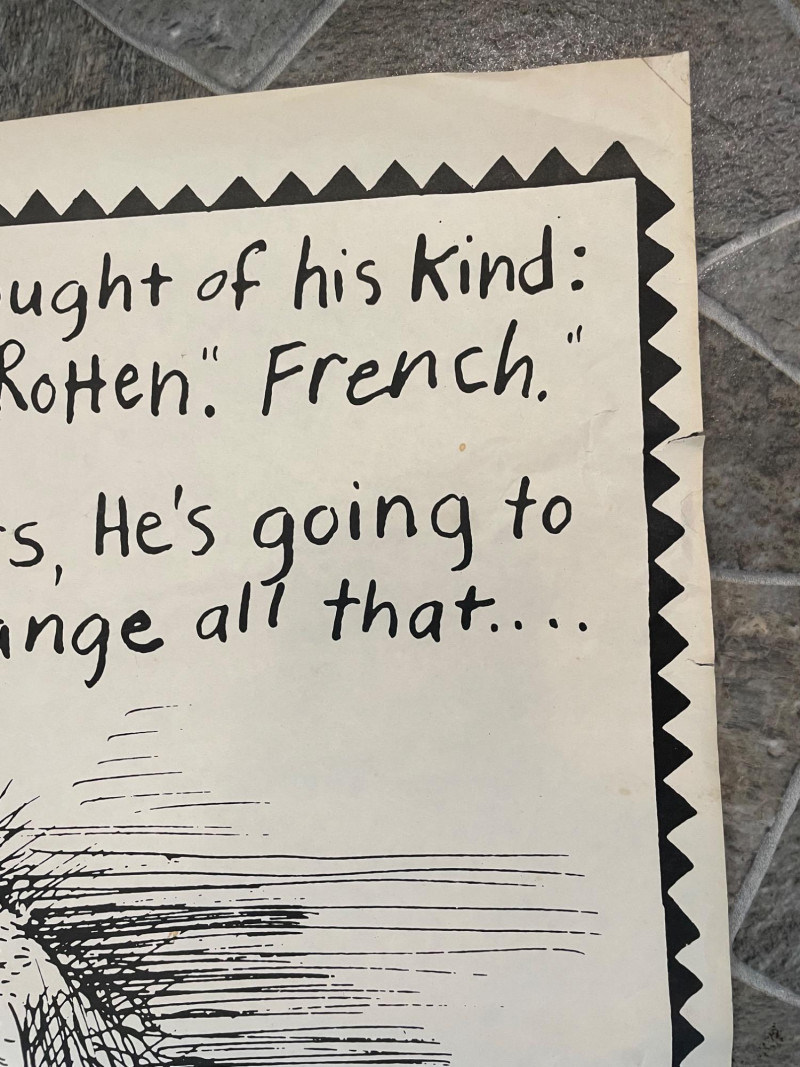 ught of his kind:
Rotten". French."
rs, He's going to
ange all that....